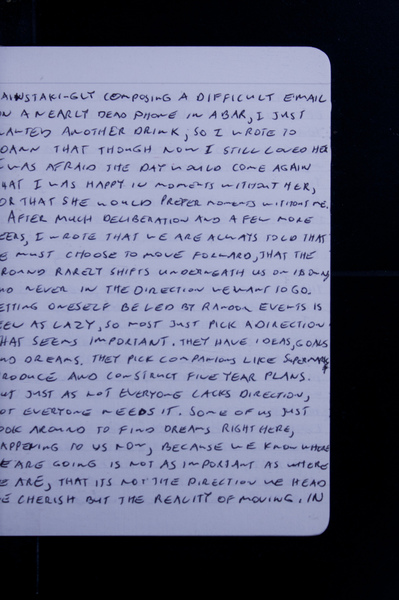 AINSTAKI-GLY COMPOSING A DIFFICULT EMAIL
ON A NEARLY DEAD PHONE IN A BAR, I JUST
ANTED ANOTHER DRINK, SO I WROTE TO
THAT THOUGH NOW I STILL LOVED HER
WAS AFRAID THE DAY WOULD COME AGAIN
HAT I WAS HAPPY IN MOMENTS WITHOUT HER,
OR THAT SHE WOULD PREFER MOMENTS WITHOUT ME.
AFTER MUCH DELIBERATION AND A FEW MORE
EERS, I WROTE THAT WE ARE ALWAYS TOLD THAT
E MUST CHOOSE TO MOVE FORWARD, THAT THE
ROUND RARELY SHIFTS UNDERNEATH US ON ITS OWN
ND NEVER IN THE DIRECTION WE WANT TO GO.
ETTING ONESELF BE LED BY RANDOM EVENTS IS
EEN AS LAZY, SO MOST JUST PICK A DIRECTION
HAT SEEMS IMPORTANT. THEY HAVE IDEAS, GOALS
ND DREAMS. THEY PICK COMPANIONS LIKE SUPERMARKET
RODUCE AND CONSTRUCT FIVE YEAR PLANS.
UT JUST AS NOT EVERYONE LACKS DIRECTION,
OT EVERYONE NEEDS IT. SOME OF US JUST
OOK AROUND TO FIND DREAMS RIGHT HERE,
APPENING TO US NOW, BECAUSE WE KNOW WHERE
E ARE GOING IS NOT AS IMPORTANT AS WHERE
E ARE, THAT ITS NOT THE DIRECTION WE HEAD
E CHERISH BUT THE REALITY OF MOVING. IN